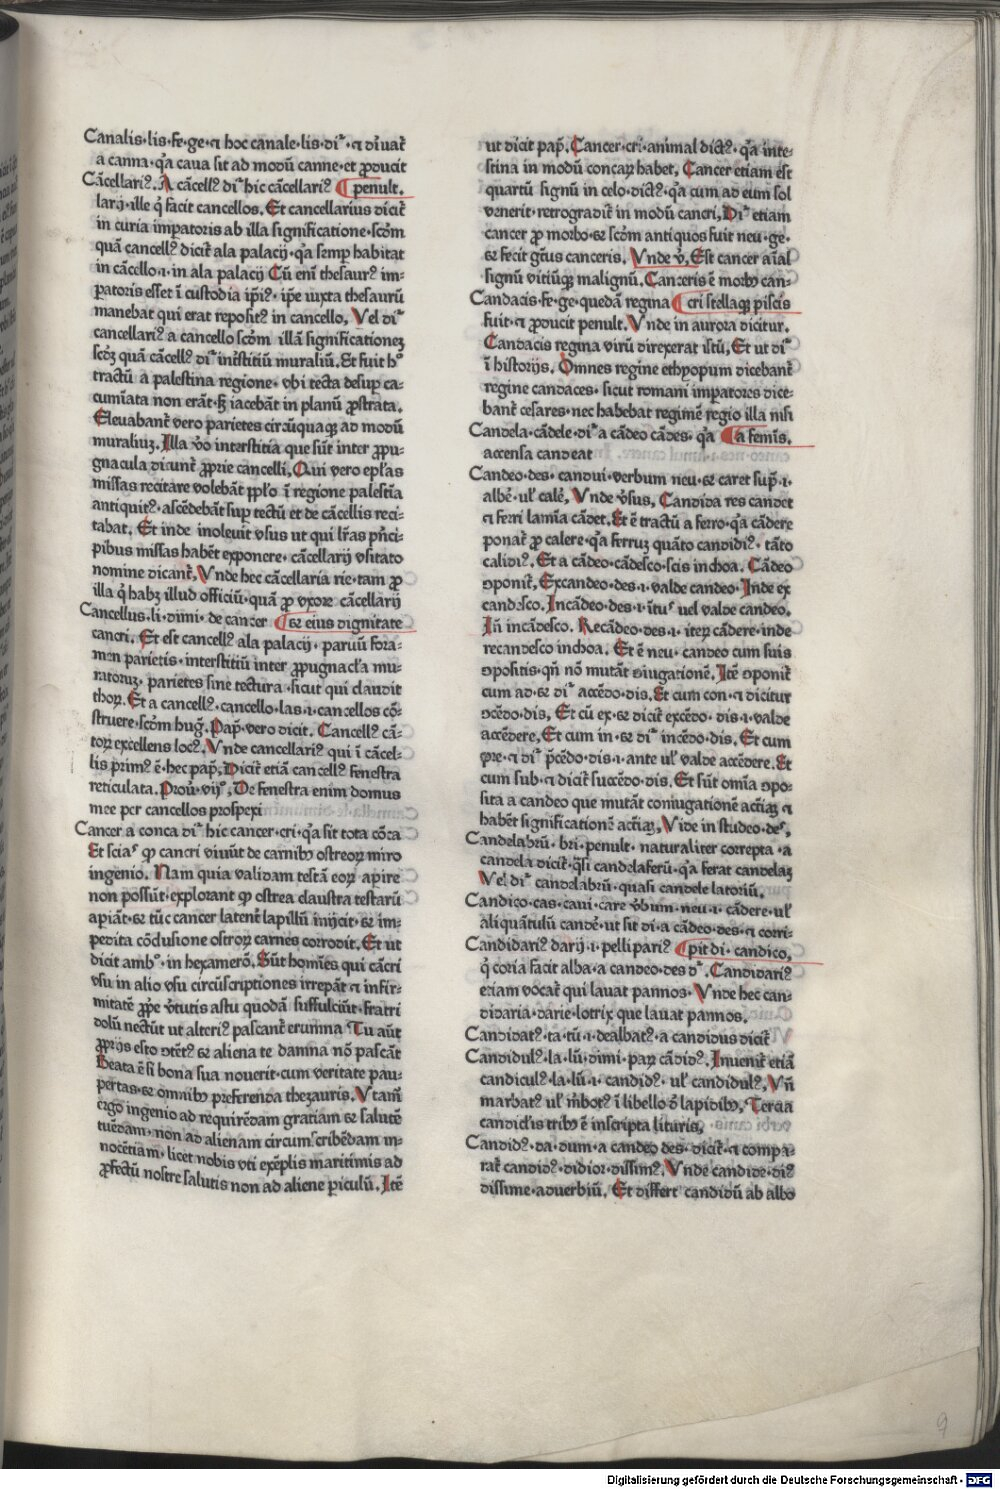 Canalis·lis·fe·ge·⁊ hoc canale·lis·di᷑·⁊ dı̄uat᷑
a canna·q̄a caua sit ad modū canne·et ꝓducit
Cācellariꝰ. A cācellꝰ di᷑ hic cācellariꝰ ¶ penult.
larij·ille q̇ facit cancellos. Et cancellarius dicit᷑
in curia imꝑatoris ab illa significatione·scḋm
quā cancellꝰ dicit᷑ ala palacij·q̄a semꝑ habitat
in cācello·i·in ala palacij Cū enī thesaurꝰ im⸗
ꝑatoris esset ī custodia ip̄iꝰ· ip̄e iuxta thesaurū
manebat qui erat repositꝰ in cancello, Vel di᷑
cancellariꝰ a cancello scḋm illā significationeꝫ
scḋꝫ quā cācellꝰ di᷑ int̄stitiū muraliū. Et fuit hͦ
tractū a palestina regione·vbi tecta desuꝑ ca⸗
cumīata non erāt·sꝫ iacebāt in planū ꝓstrata.
Eleuabant᷑ vero parietes circūquaqꝫ ad modū
muraliuꝫ. Illa v̇o interstitia que sūt inter ꝓpu⸗
gnacula dicunt᷑ ꝓprie cancelli, Qui vero ep̄las
missas recitare volebāt ꝓp̄lo ī regione palestīa
antiquitꝰ·ascēdebāt suꝑ tectū et de cācellis reci⸗
tabat. Et inde inoleuit vsus ut qui lr̄as pn̄ci⸗
pibus missas habēt exponere·cācellarij vsitato
nomine dicant᷑, Vnde hec cācellaria rie·tam ꝓ
illa q̇ habꝫ illud officiū·quā ꝓ vxore cācellarij
Cancellus·li·dimi·de cancer ¶ se eius dignitate
cancri. Et est cancellꝰ ala palacij·paruū fora⸗
men parietis·interstitiū inter ꝓpugnacl̄a mu⸗
ratoruꝫ·parietes sine tectura·sicut qui claudit
thoꝝ. Et a cancellꝰ·cancello·las·i·cancellos cō⸗
struere·scḋm hug̅. Pap̄·vero dicit. Cancellꝰ cā⸗
toꝝ excellens locꝰ. Vnde cancellariꝰ qui ī cācel⸗
lis primꝰ ē·hec pap̄, Dicit᷑ etiā cancellꝰ fenestra
reticulata. Prou᷑·vijͦ, De fenestra enim domus
mee per cancellos prospexi
Cancer a conca di᷑ hic cancer·cri·q̄a sit tota cōca
Et sciaˢ ꝙ cancri viuūt de carnibꝰ ostreoꝝ miro
ingenio. Nam quia validam testā eoꝝ apire
non possūt·explorant ꝙ ostrea claustra testarū
apiāt·⁊ tūc cancer latent᷑ lapillū inijcit·⁊ im⸗
pedita cōclusione ostroꝝ carnes corrodit. Et ut
dicit ambͦ·in hexamerō. Sūt homīes qui cācri
vsu in alio vsu circūscriptiones irrepāt ⁊ infir⸗
mitatē ꝓp̄e v̄tutis astu quodā suffulciūt·fratri
dolū nectūt ut alteriꝰ pascant᷑ erumna Tu aūt
ꝓprijs esto ↄtētꝰ ⁊ aliena te damna nō pascāt
Beata ē si bona sua nouerit·cum veritate pau⸗
pertas·⁊ omnibꝫ preferenda thezauris. Vtam̄
ergo ingenio ad requirēdam gratiam ⁊ salutē
tuēdam·non ad alienam circumscribēdam in⸗
nocētiam·licet nobis vti exēplis maritimis ad
ꝓfectū nostre salutis non ad aliene ꝑiculū. Itē
ut dicit pap̄. Cancer·cri·animal dictꝰ·q̄a inte⸗
stina in modū concaꝝ habet, Cancer etiam est
quartū signū in celo·dictꝰ·q̄a cum ad eum sol
venerit·retrogradit᷑ in modū cancri, Di᷑ etiam
cancer ꝓ morbo·⁊ scḋm antiquos fuit neu·ge·
⁊ fecit gtūs canceris. Vnde v̇, Est cancer aīal
signū vitiūqꝫ malignū. Canceris ē morbꝰ can⸗
Candacis·fe·ge·quedā regina ¶ cri stellaqꝫ piscis
fuit·⁊ ꝓducit penult. Vnde in aurora dicitur.
Candacis regina virū direxerat istū, Et ut di᷑
ī historijs. Omnes regine ethyopum dicebant᷑
regine candaces·sicut romani imꝑatores dice⸗
bant᷑ cesares·nec habebat regimē regio illa nisi
Candela·cādele·di᷑ a cādeo cādes·q̄a ¶ a femīs.
accensa candeat
Candeo·des·candui·verbum neu·⁊ caret sup̄·i·
albē·ul̄ calē, Vnde v̇sus, Candida res candet
⁊ ferri lamīa cādet. Et ē tractū a ferro·q̄a cādere
ponat᷑ ꝓ calere·q̄a ferruꝫ quāto candidiꝰ·tāto
calidiꝰ. Et a cādeo·cādesco·scis inchoa. Cādeo
ↄponit᷑, Excandeo·des·i·valde candeo. Inde ex
candesco. Incādeo·des·i·ītuˢ uel valde candeo.
Iñ incādesco. Recādeo·des·i·iteꝝ cādere·inde
recandesco inchoa. Et ē neu·candeo cum suis
ↄpositis·qn̄ nō mutāt ↄiugationē. Itē ↄponit᷑
cum ad·⁊ di᷑ accēdo·dis. Et cum con·⁊ dicitur
ↄcēdo·dis, Et cū ex·⁊ dicit᷑ excēdo·dis·i·valde
accēdere, Et cum in·⁊ di᷑ incēdo·dis. Et cum
pre·⁊ di᷑ p̄cēdo·dis·i·ante ul̄ valde accēdere. Et
cum sub·⁊ dicit᷑ succēdo·dis. Et sūt omīa ↄpo⸗
sita a candeo que mutāt coniugationē actīaꝝ ⁊
habēt significationē actīaꝝ, Vide in studeo·deˢ,
Candelabrū·bri·penult·naturaliter correpta·a
candela dicit᷑·q̄si candelaferū·q̄a ferat candelaꝫ
Vel di᷑ candelabrū·quasi candele latoriū.
Candico·cas·caui·care v̇bum·neu·i·cādere·ul̄
aliquātulū candē·ut sit di·a cādeo·des·⁊ corri⸗
Candidariꝰ darij·i·pellipariꝰ ¶ pit di·candico,
q̇ coria facit alba·a candeo·des d᷑. Candidariꝰ
etiam vocat᷑ qui lauat pannos·Vnde hec can⸗
didaria·darie·lotrix que lauat pannos.
Candidatꝰ·ta·tū·i·dealbatꝰ·a candidus dicit᷑
Candidulꝰ·la·lū·dimi·paꝝ cādidꝰ. Inuenit᷑ etiā
candiculꝰ·la·lū·i·candidꝰ·ul̄ candidulꝰ, Vn̄
marbatꝰ ul̄ m̄botꝰ ī libello ḋ lapidibꝫ, Tercia
candiclis tribꝫ ē inscripta lituris.
Candidꝰ·da·dum·a candeo des·dicit᷑·⁊ compa⸗
rat᷑ candidꝰ·didior·dissimꝰ. Vnde candide·diꝰ
dissime·aduerbiū. Et differt candidū ab albo
9
Digitalisierung gefördert durch die Deutsche Forschungsgemeinschaft · DFG